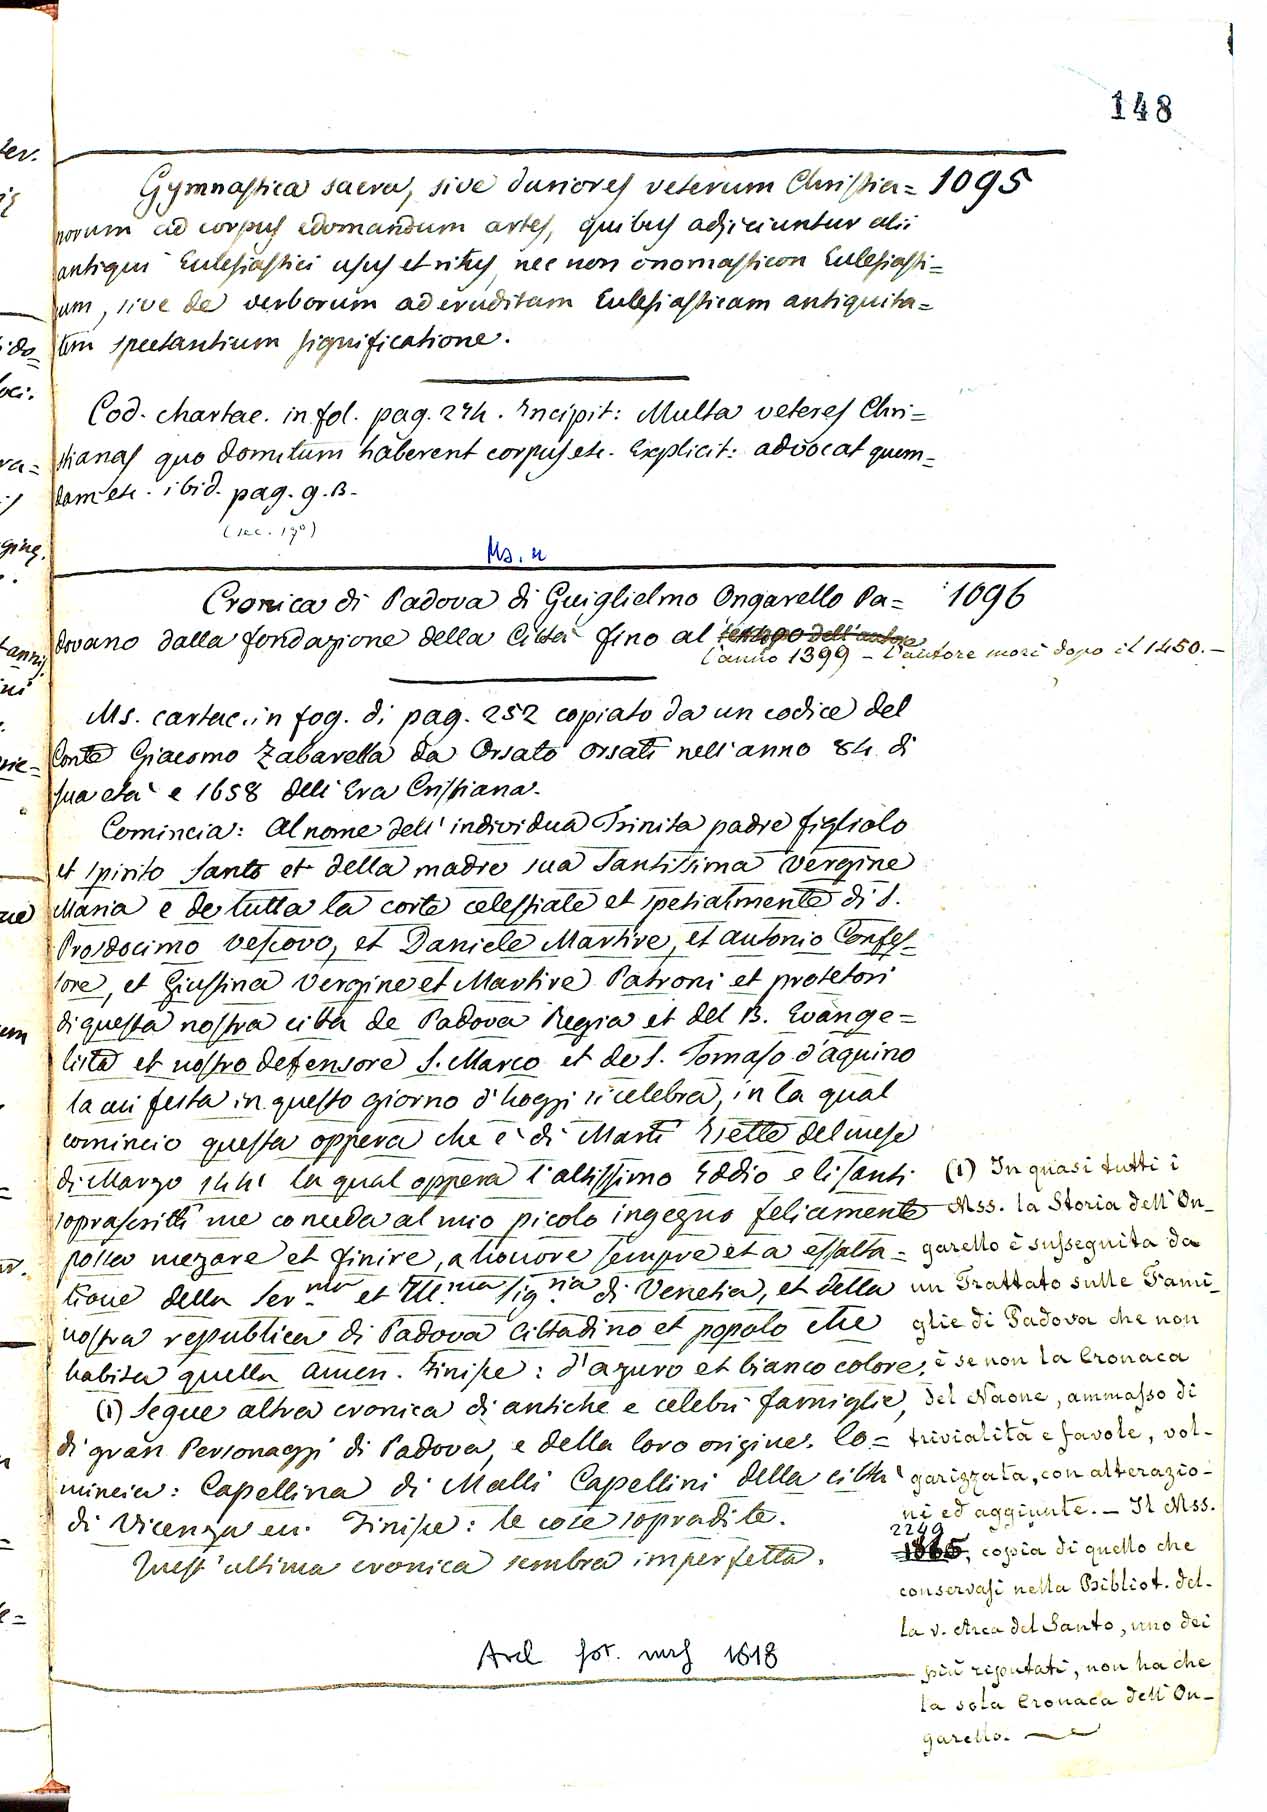 148
Gymnastica sacra, sive duriores veterum Christia= 1095
norum ad corpus edomandum artes, quibus adjiciuntur alii
antiqui Eulesiastici usus et ritus, nec non onomasticon Eulesiasti=
um, sive de verborum ad eruditam Eulesiasticam antiquita=
tem spectantium significatione.
Cod. chartac. in fol. pag. 274. Incipit: Multa veteres Chri=
stianas quo domitum haberent corpus etc. Explicit: advocat quem=
dam etc. ibid. pag. 9. B.
(sec. 17º)
Ms. 4
Cronica di Padova di Guiglielmo Ongarello Pa= 1096
dovano dalla fondazione della Città fino al tempo dell'autore
l'anno 1399 – l'autore morì dopo il 1450. –
Ms. cartac. in fog. di pag. 252 copiato da un codice del
Conte Giacomo Zabarella da Orsato Orsati nell'anno 84 di
sua età e 1658 dell'Era Cristiana.
Comincia: Al nome dell'individua Trinita padre figliolo
et spirito Santo et della madre sua Santissima Vergine
Maria e de tutta la corte celestiale et spetialmente di S.
Prosdocimo Vescovo, et Daniele Martire, et Antonio Confes=
sore, et Giustina Vergine et Martire Patroni et protetori
di questa nostra citta de Padova Regia et del B. Evange=
lista et nostro defensore S. Marco et de S. Tomaso d'aquino
la cui festa in questo giorno d'hoggi si celebra, in la qual
comincio questa oppera che è di Marti Sette del mese
di Marzo 1441 la qual oppera l'altissimo Iddio e li santi
soprascritti me conceda al mio picolo ingegno felicemente
possa mezare et finire, a honore sempre et a essalta=
tione della Ser.ma et Ill.ma Sig.ria di Venetia, et della
nostra republica di Padova Cittadino et popolo che
habita quella Amen. Finisce: d'azuro et bianco colore.
(1) Segue altra cronica di antiche e celebri famiglie,
di gran Personaggi di Padova, e della loro origine. Co=
mincia: Capellina di Malli Capellini della citta
di Vicenza ec. Finisce: le cose sopradite.
Quest'ultima cronica sembra imperfetta.
(1) In quasi tutti i
Mss. la Storia dell'On=
garello è susseguita da
un Trattato sulle Fami=
glie di Padova che non
è se non la Cronaca
del Naone, ammasso di
trivialità e favole, vol=
garizzata, con alterazio=
ni ed aggiunte. – Il Mss.
2249
1865, copia di quello che
conservasi nella Bibliot. del=
la v. Arca del Santo, uno dei
più riputati, non ha che
la sola Cronaca dell'On=
garello.
fot. 1618